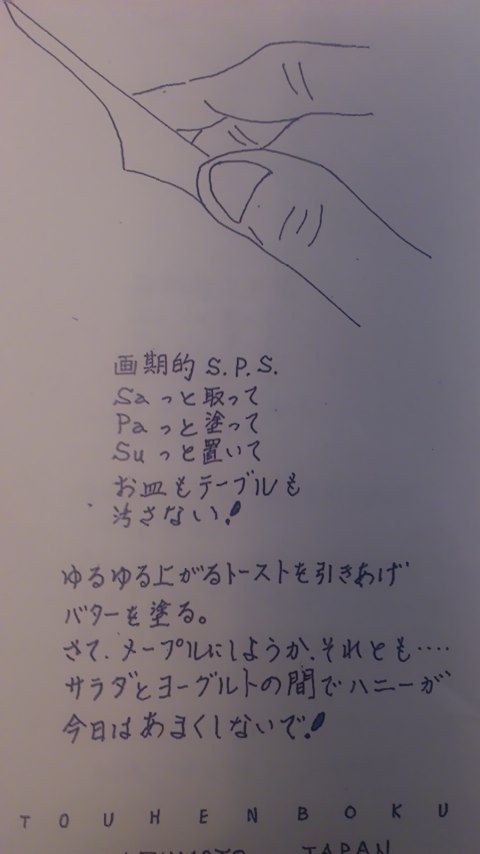 画期的 S.P.S.
Saっと取って
Paっと塗って
Suっと置いて
お皿もテーブルも
汚さない!
ゆるゆる上がるトーストを引きあげ
バターを塗る。
さて、メープルにしようか、それとも‥‥
サラダとヨーグルトの間でハニーが
今日はあまくしないで!
TOUHENBOKU
JAPAN